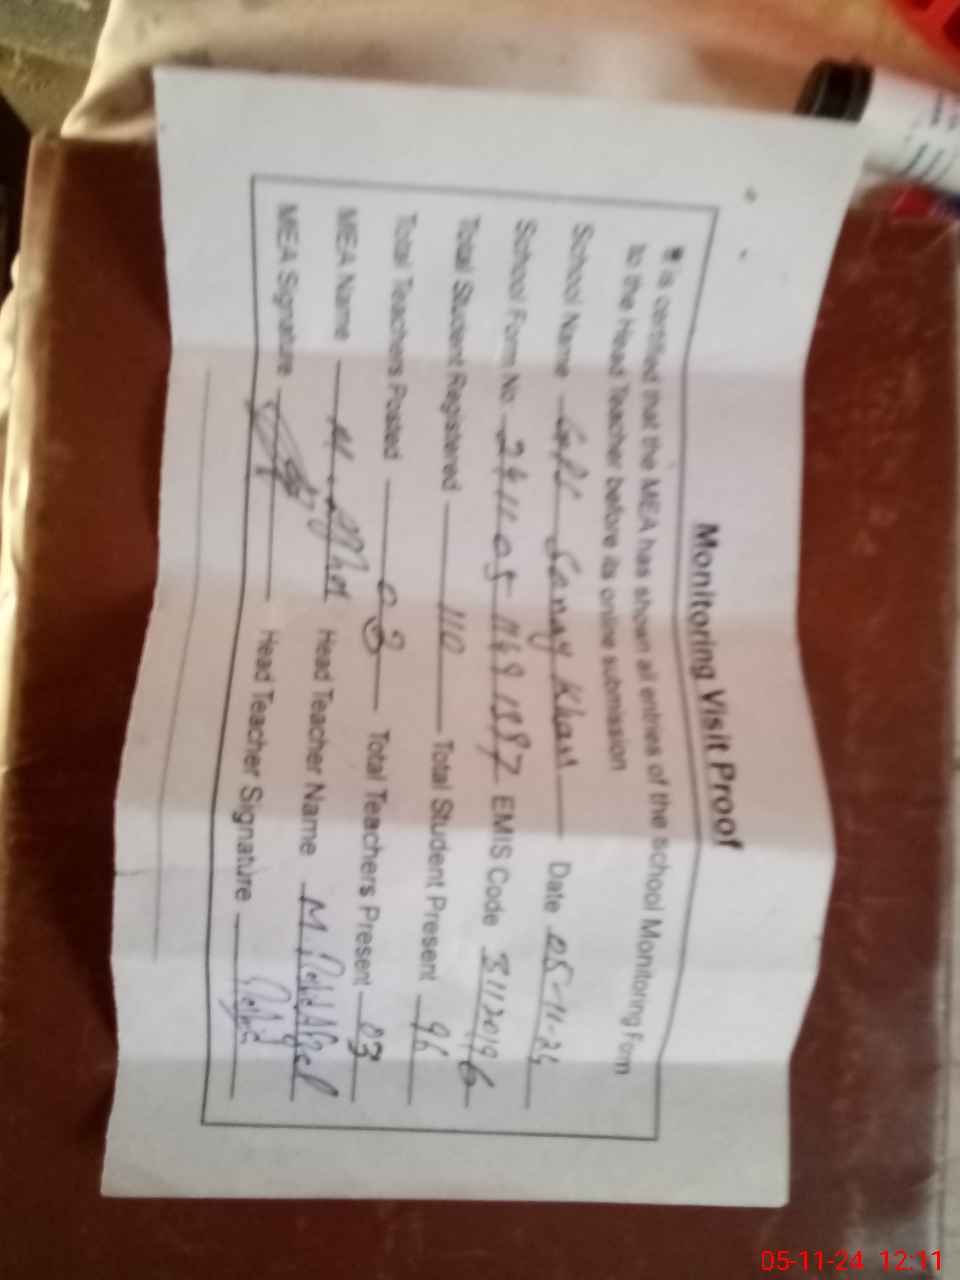 Monitoring Visit Proof
It is certified that the MEA has shown all entries of the school Monitoring Form
to the Head Teacher before its online submission
School Name Sanay Khan Date 05-11-24
School Form No 2411051691997 EMIS Code 31120196
Total Student Registered 110 Total Student Present 96
Total Teachers Posted 03 Total Teachers Present 03
MEA Name M. Head Teacher Name M
MEA Signature Head Teacher Signature
05-11-24 12:11